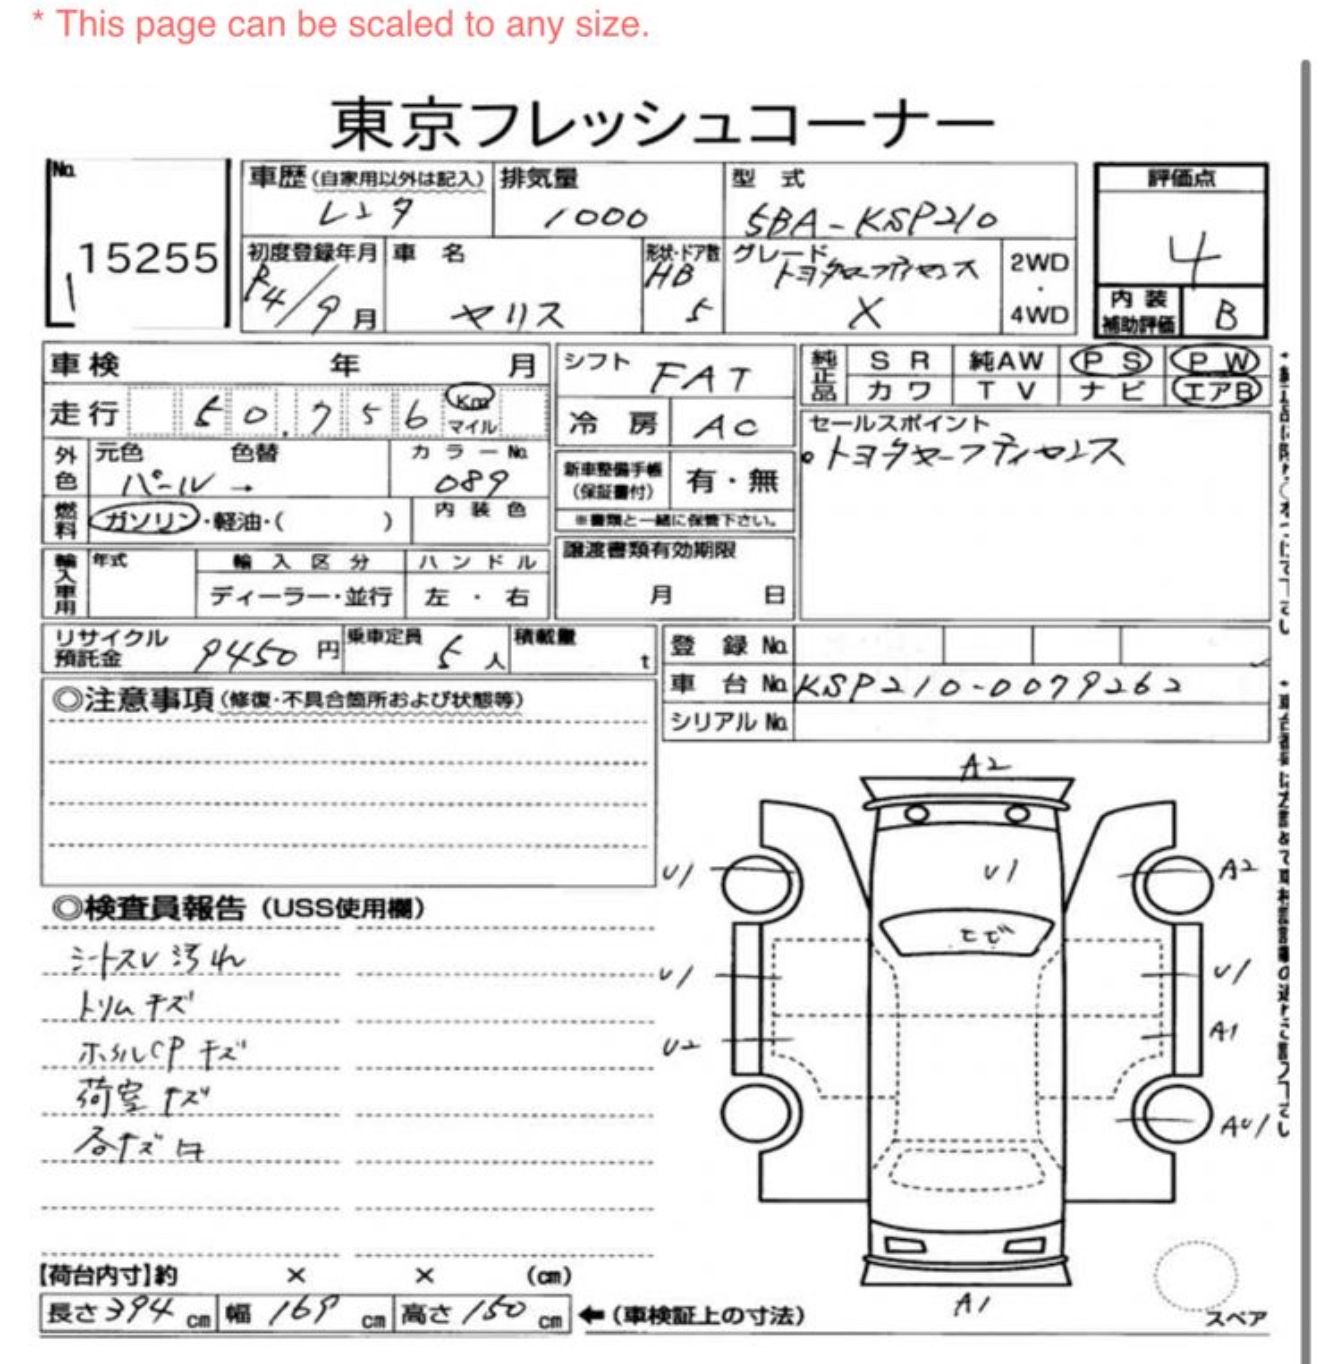 * This page can be scaled to any size.
東京フレッシュコーナー
No.
15255
1
車歴(自家用以外は記入)
レンタ
排気量
1000
型式
5BA-KSP210
評価点
4
初度登録年月
R4/9月
車名
ヤリス
形状・ドア数
HB
5
グレード
トヨタセーフティセンス
X
2WD
・
4WD
内装
補助評価
B
車検 年 月
シフト
FAT
純正品
SR 純AW PS PW
カワ TV ナビ エアB
走行 50,756 Km
マイル
冷房 AC
セールスポイント
・トヨタセーフティセンス
外色
元色 色替
パール →
カラーNo.
089
新車整備手帳
(保証書付)
有・無
※書類と一緒に保管下さい。
燃料
ガソリン・軽油・( )
内装色
輸入車用
年式
輸入区分
ディーラー・並行
ハンドル
左・右
譲渡書類有効期限
月 日
リサイクル
預託金
9450円
乗車定員
5人
積載量
t
登録No.
車台No. KSP210-0079262
シリアルNo.
◎注意事項(修復・不具合箇所および状態等)
◎検査員報告(USS使用欄)
シートスレ汚れ
トリムキズ
ホイルCPキズ
荷室キズ
各キズ凹
A2
U1
U1
A2
トビ
U1
U1
U2
A1
AU1
A1
スペア
【荷台内寸】約 × × (cm)
長さ394cm 幅169cm 高さ150cm ←(車検証上の寸法)